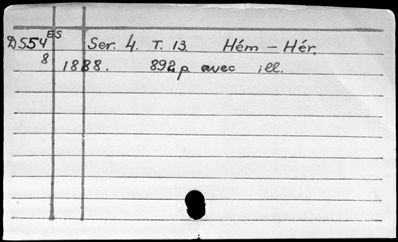 DS54 ES Ser. 4. T. 13. Hém – Hér.
8 1888. 892p avec ill.